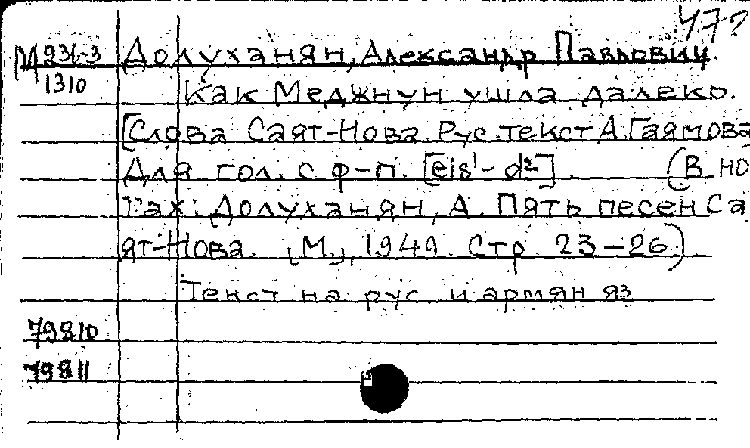 477
М 936-3 Долуханян, Александр Павлович.
1310
Как Меджнун ушла далеко.
[Слова Саят-Нова. Рус. текст А. Гаямова
Для гол. с ф-п. [eis¹-d²]. (В но-
тах: Долуханян, А. Пять песен Са-
ят-Нова. [М.], 1949. Стр. 23-26.)
Текст на рус. и армян. яз.
79810
79811